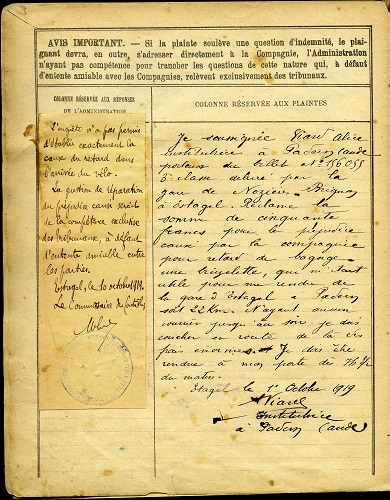 AVIS IMPORTANT. — Si la plainte soulève une question d'indemnité, le plai-
gnant devra, en outre, s'adresser directement à la Compagnie, l'Administration
n'ayant pas compétence pour trancher les questions de cette nature qui, à défaut
d'entente amiable avec les Compagnies, relèvent exclusivement des tribunaux.
COLONNE RÉSERVÉE AUX RÉPONSES
DE L'ADMINISTRATION
L'enquête n'a pas permis
d'établir exactement la
cause du retard dans
l'arrivée du vélo.
La question de réparation
du préjudice causé serait
de la compétence exclusive
des tribunaux, à défaut
d'entente amiable entre
les parties.
Estagel, le 10 octobre 1919
Le Commissaire de
COLONNE RÉSERVÉE AUX PLAINTES
Je soussignée Viard Alice
institutrice à Padern (Aude)
porteur du billet N° 156055
3e classe délivré par la
gare de Nozières-Brignon
à Estagel. Réclame la
somme de cinquante
francs pour le préjudice
causé par la compagnie
pour retard de bagage
une bicyclette, qui m'était
utile pour me rendre de
la gare d'Estagel à Padern
soit 22 Km. N'ayant aucun
courrier jusqu'au soir je dois
coucher en route de là des
frais énormes. Je devais être
rendue à mon poste dès 7h 1/2
du matin.
Estagel le 1er Octobre 1919
AViard
Institutrice
à Padern (Aude)